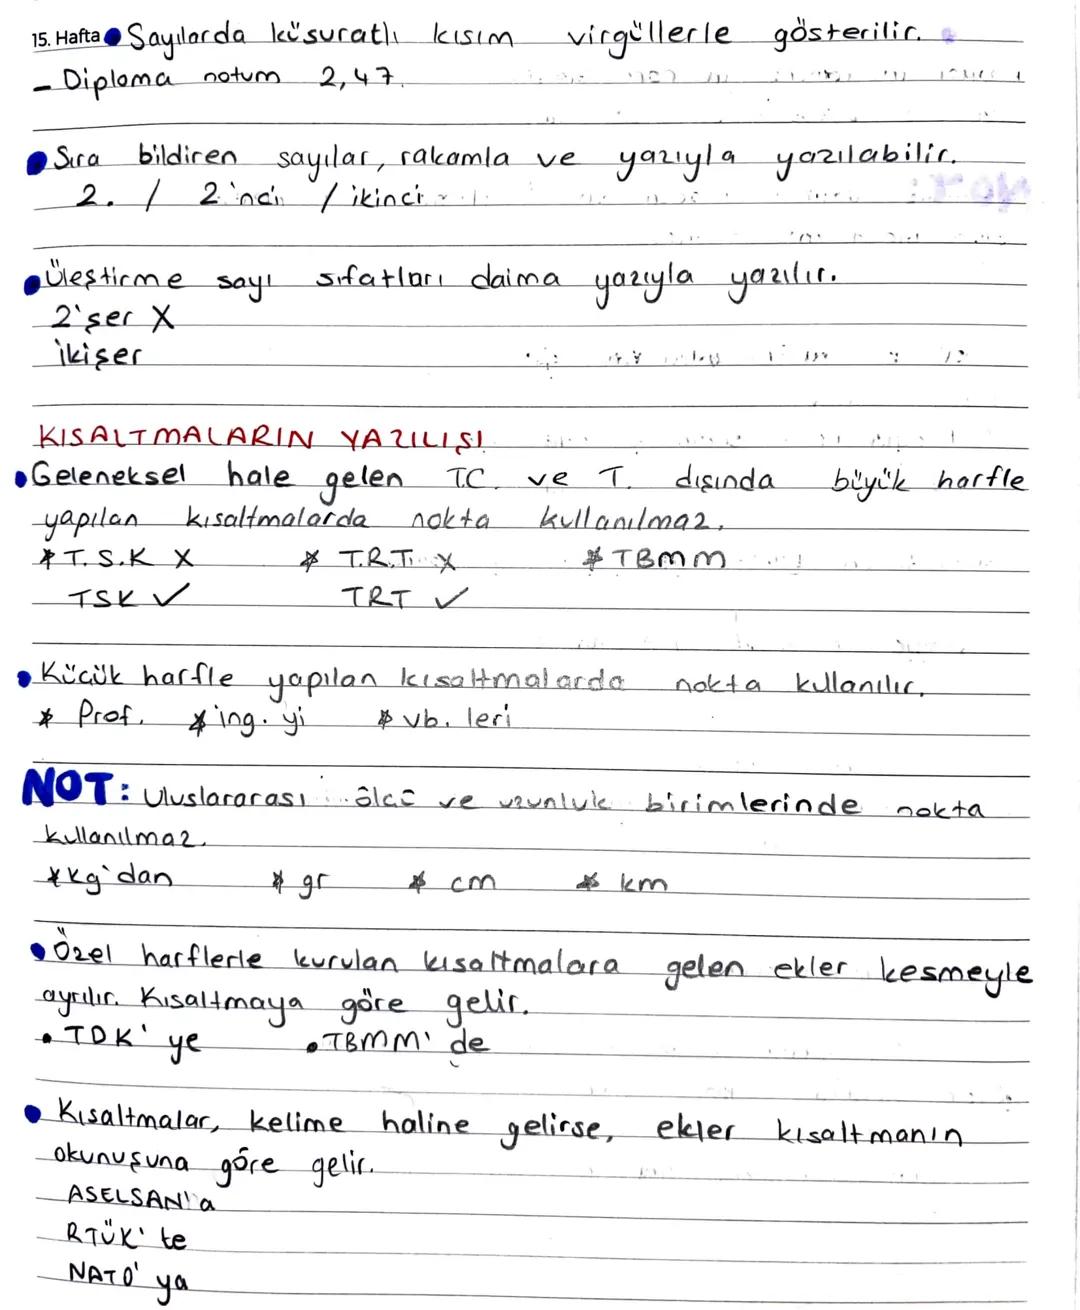 15. Hafta ● Sayılarda küsuratlı kısım virgüllerle gösterilir.
- Diploma notum 2,47.
● Sıra bildiren sayılar, rakamla ve yazıyla yazılabilir.
2. / 2'nci / ikinci
● Üleştirme sayı sıfatları daima yazıyla yazılır.
2'şer X
ikişer
KISALTMALARIN YAZILIŞI
● Geleneksel hale gelen T.C. ve T. dışında büyük harfle
yapılan kısaltmalarda nokta kullanılmaz.
* T.S.K X * T.R.T. X * TBMM
TSK ✓ TRT ✓
● Küçük harfle yapılan kısaltmalarda nokta kullanılır.
* Prof. * ing. yi * vb. leri
NOT: Uluslararası ölçü ve uzunluk birimlerinde nokta
kullanılmaz.
* kg'dan * gr * cm * km
● Özel harflerle kurulan kısaltmalara gelen ekler kesmeyle
ayrılır. Kısaltmaya göre gelir.
• TDK'ye • TBMM'de
● Kısaltmalar, kelime haline gelirse, ekler kısaltmanın
okunuşuna göre gelir.
ASELSAN'a
RTÜK'te
NATO'ya